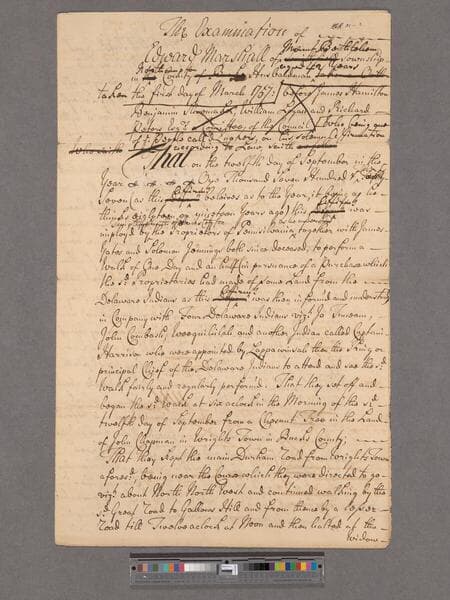 The Examination of
Edward Marshall of Mount Bethel Township
in Northampton County Husbandman aged 42 years
taken the first day of March 1757. before James Hamilton
Benjamin Shoemaker, William Logan and Richard
Peters Esqrs. Committee of the Council who being one of
the People called Quakers, on his solemn Affirmation
according to Law, saith
who saith
That on the twelfth day of September in the
Year One Thousand Seven Hundred & Thirty
Seven (as this Affirmt believes as to the Year, it being as he
thinks eighteen or nineteen Years ago) this Affirmt was
imployd by the Proprietors of Pennsilvania, together with James
Yates and Solomon Jennings both since deceased, to perform a
Walk of One Day and an half (in pursuance of a Purchase which
the sd. Proprietaries had made of some Land from the
Delaware Indians as this Affirmt was then informd and understood)
in Company with Four Delaware Indians vizt. Jo Tuneam,
John Combush, Neepaheilah and another Indian called Captain
Harrison who were appointed by Lappawinsah then the King or
principal Chief of the Delaware Indians to attend and see the sd.
Walk fairly and regularly performd. That they set off and
began the sd. Walk at Six a clock in the Morning of the sd.
twelfth day of September from a Chesnut Tree in the Land
of John Chapman in Wrights Town in Bucks County;
That they kept the main Durham Road from Wrights Town
aforesd. being near the Course which they were directed to go
vizt. about North North West and continued walking by the
sd. Great Road to Gallows Hill and from thence by a lesser
Road till Twelve a clock at Noon and then halted at the
Widow